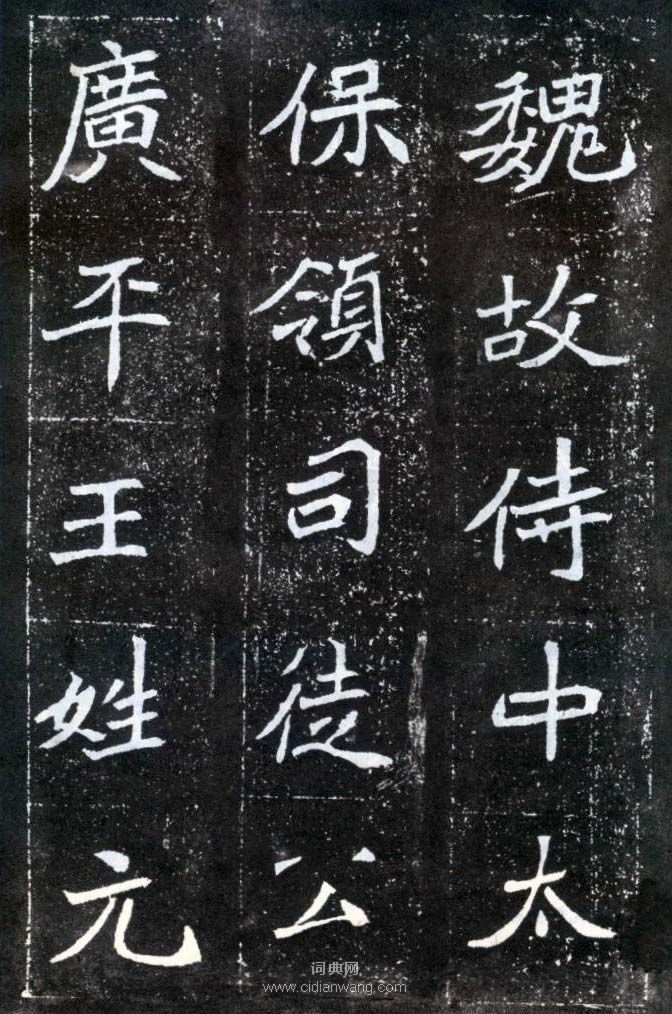 魏故侍中太
保領司徒公
廣平王姓元
词典网
www.cidianwang.com